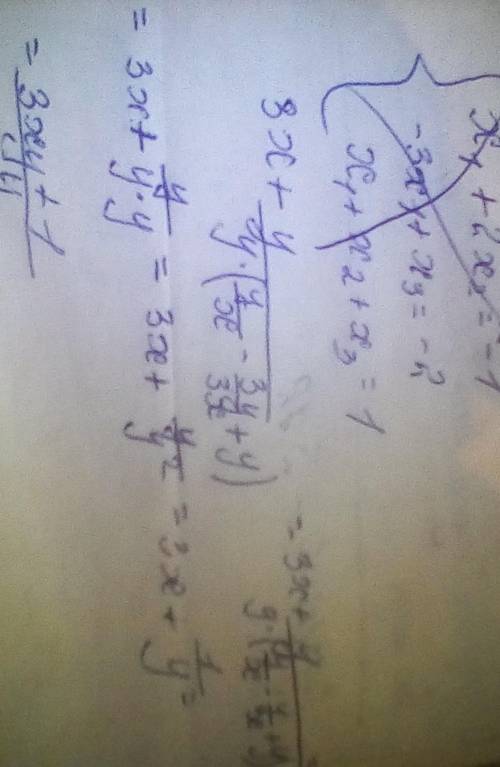 x₁ + 2x₂ = -1
-3x₁ + x₃ = -2
x₁ + x₂ + x₃ = 1
3x + y/(y·(y/x - 3y/3x + y)) = 3x + y/(y·(y/x - y/x + y)) =
= 3x + y/(y·y) = 3x + y/y² = 3x + 1/y =
= (3xy + 1)/y